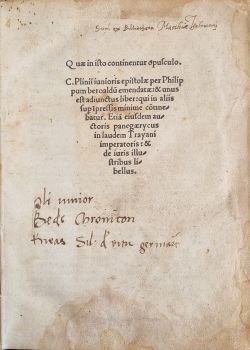 Sum ex Bibliotheca Matthiæ
Quæ in isto continentur opusculo.
C. Plinii iunioris epistolæ per Philip
pum beroaldū emendatæ: & unus
est adiunctus liber: qui in aliis
supīpressis minime cōtine-
batur. Etiā eiusdem au-
ctoris panegærycus
in laudem Trayani
imperatoris: &
de iuris illu-
stribus li
bellus.
plī iunior
Bede Chronicon
Eneas Sil: d'ritu germanie